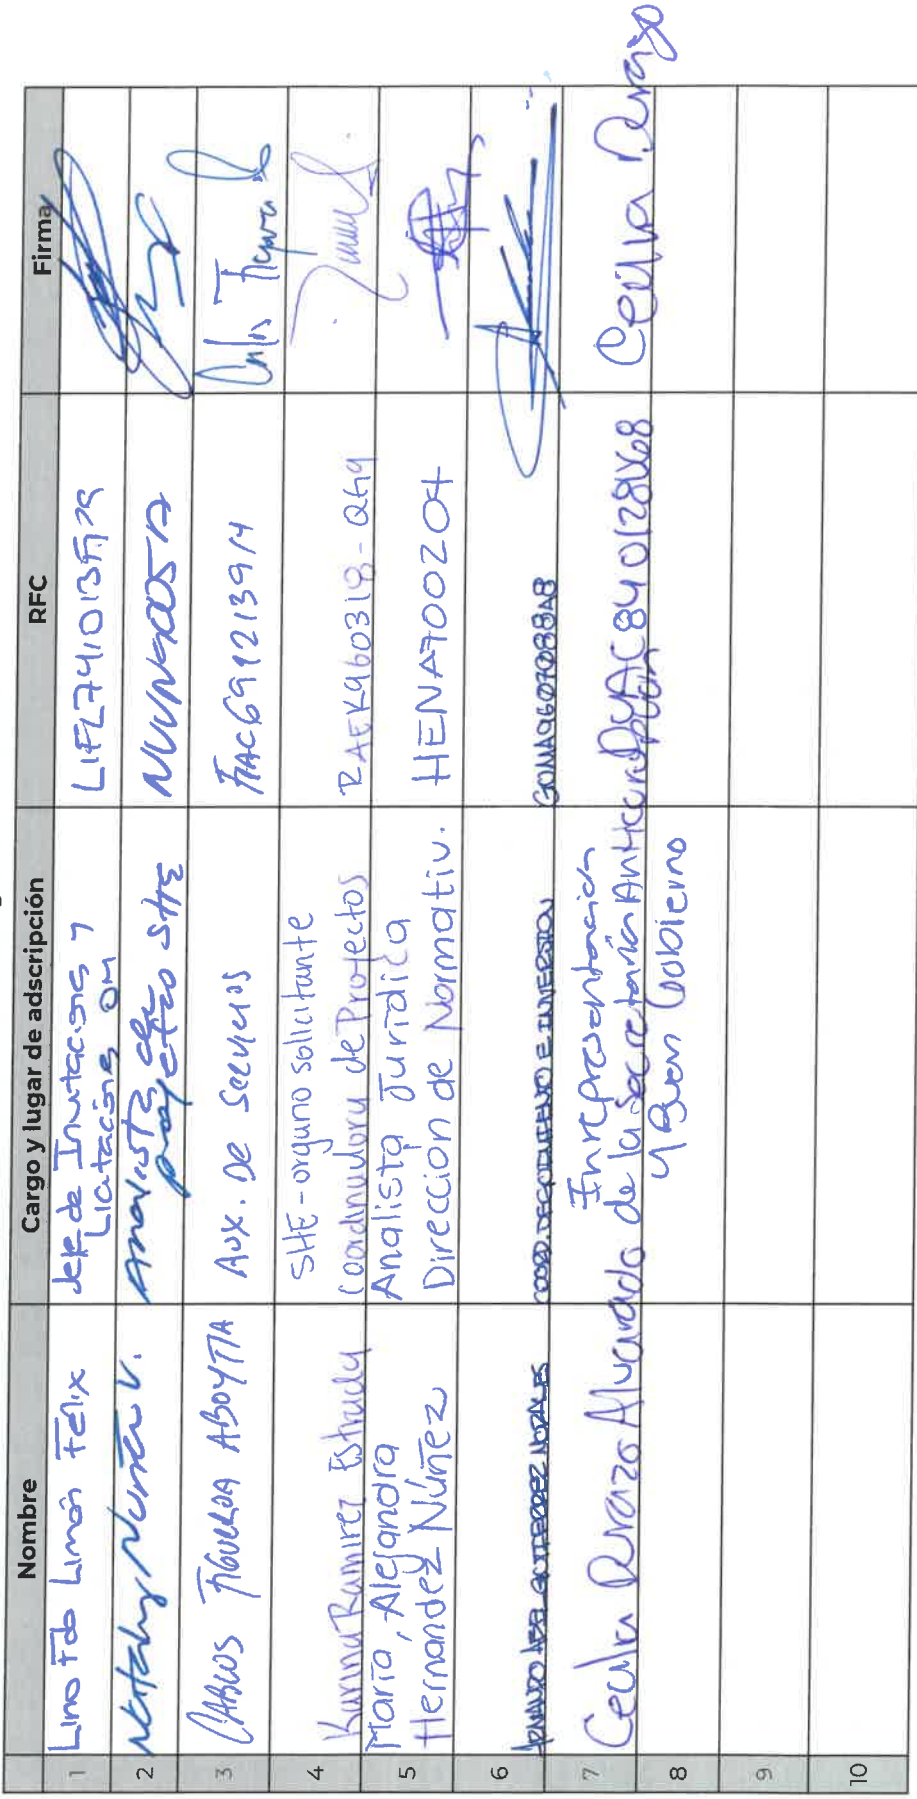 Nombre Cargo y lugar de adscripción RFC Firma
1 Lino Fdo Limón Felix Jefe de Invitaciones y
Licitaciones OM
2 Nathaly Núñez V. Analista de
proyectos SHE
3 CARLOS FIGUEROA ABOYTIA Aux. De Servicios FIAC691213914 Carlos Figueroa
4 Karina Ramirez Estrada SHE - organo solicitante
Coordinadora de Proyectos RAEK960318-QH9
5 María, Alejandra
Hernandez Núñez Analista Jurídica
Dirección de Normativ. HENA700204
6 ARMANDO ABEL GUTIERREZ MORALES COORD. DE SEGUIMIENTO E INVERSION
7 Cecilia Durazo Alvarado En representación
de la Secretaría Anticorrupción
y Buen Gobierno DUAC840128 Cecilia Durazo
8
9
10